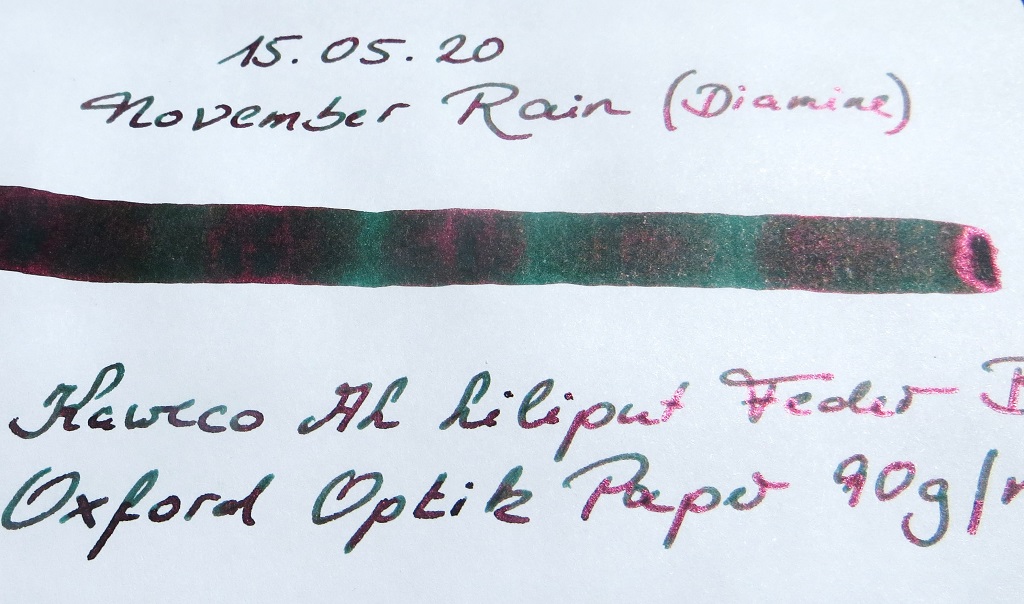 15.05.20
November Rain (Diamine)
Kaweco Al Liliput Feder B
Oxford Optik Paper 90g/m